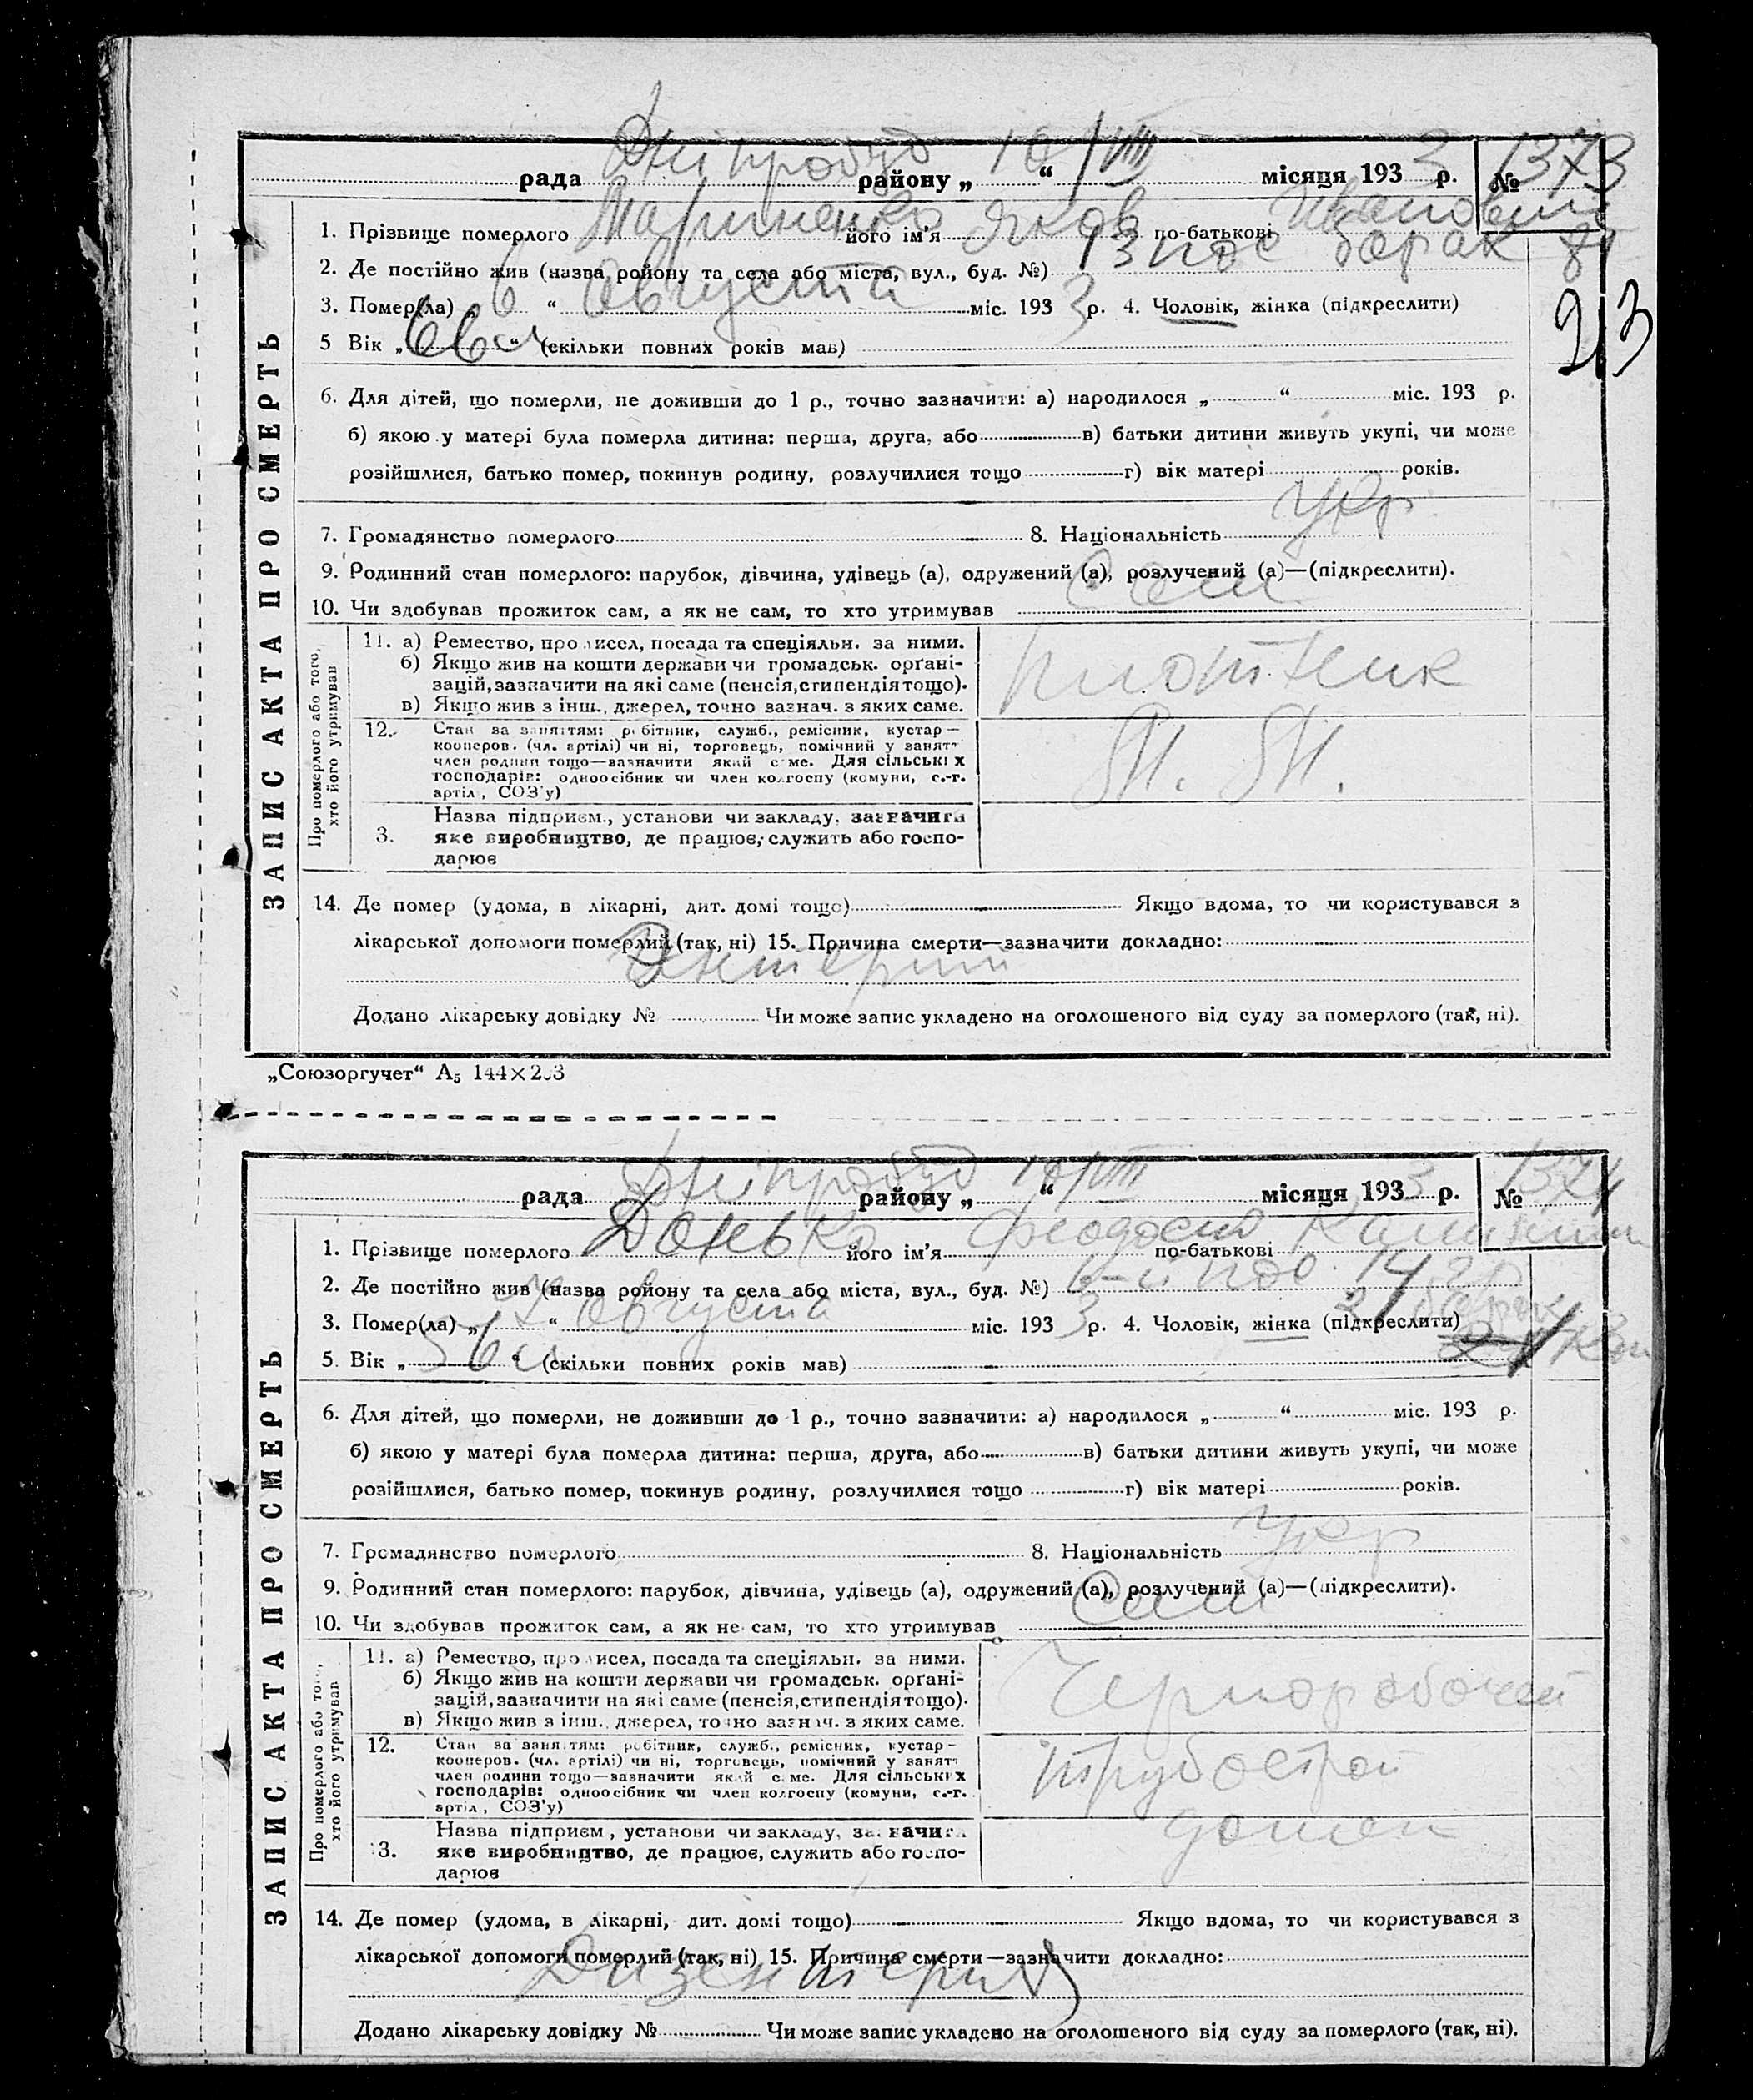 Дніпробуд 10/VIII 3 1373
рада району „ “ місяця 193 р. №
ЗАПИС АКТА ПРО СМЕРТЬ
1. Прізвище померлого Мариненко його ім'я Яков по-батькові Иванович
2. Де постійно жив (назва району та села або міста, вул., буд. №) 13 пос барак 81
3. Помер(ла) „ 6 “ августа міс. 193 3 р. 4. Чоловік, жінка (підкреслити)
213
5 Вік „ “ (скільки повних років мав)
6. Для дітей, що померли, не доживши до 1 р., точно зазначити: а) народилося „ “ міс. 193 р.
б) якою у матері була померла дитина: перша, друга, або в) батьки дитини живуть укупі, чи може
розійшлися, батько помер, покинув родину, розлучилися тощо г) вік матері років.
7. Громадянство померлого 8. Національність укр
9. Родинний стан померлого: парубок, дівчина, удівець (а), одружений (а), розлучений (а)—(підкреслити).
10. Чи здобував прожиток сам, а як не сам, то хто утримував сам
Про померлого або того, хто його утримував
11. а) Ремество, про исел, посада та спеціяльн. за ними.
б) Якщо жив на кошти держави чи громадськ. орґані-
зацій, зазначити на які саме (пенсія, стипендія тощо).
в) Якщо жив з інш., джерел, точно зазнач. з яких саме.
плотник
12. Стан за заняттям: робітник, служб., ремісник, кустар—
кооперов. (чл. артілі) чи ні, торговець, помічний у занятт
член родини тощо—зазначити який саме. Для сільських
господарів: одноосібник чи член колгоспу (комуни, с.-г.
артіл., СОЗ'у)
3. Назва підприєм., установи чи закладу, зазначити
яке виробництво, де працює, служить або госпо-
дарює
14. Де помер (удома, в лікарні, дит. домі тощо) Якщо вдома, то чи користувався з
лікарської допомоги померлий (так, ні) 15. Причина смерти—зазначити докладно:
Додано лікарську довідку № Чи може запис укладено на оголошеного від суду за померлого (так, ні).
„Союзоргучет“ А5 144×203
Дніпробуд 10/VIII 3 1374
рада району „ “ місяця 193 р. №
ЗАПИС АКТА ПРО СМЕРТЬ
1. Прізвище померлого Донько його ім'я Феодосия по-батькові
2. Де постійно жив (назва району та села або міста, вул., буд. №) 6-й пос. 14
3. Помер(ла) „ “ августа міс. 193 3 р. 4. Чоловік, жінка (підкреслити)
5. Вік „ “ (скільки повних років мав)
6. Для дітей, що померли, не доживши до 1 р., точно зазначити: а) народилося „ “ міс. 193 р.
б) якою у матері була померла дитина: перша, друга, або в) батьки дитини живуть укупі, чи може
розійшлися, батько помер, покинув родину, розлучилися тощо г) вік матері років.
7. Громадянство померлого 8. Національність укр
9. Родинний стан померлого: парубок, дівчина, удівець (а), одружений (а), розлучений (а)—(підкреслити).
10. Чи здобував прожиток сам, а як не сам, то хто утримував сам
Про померлого або того, хто його утримував
11. а) Ремество, про исел, посада та спеціяльн. за ними.
б) Якщо жив на кошти держави чи громадськ. орґані-
зацій, зазначити на які саме (пенсія, стипендія тощо).
в) Якщо жив з інш., джерел, точно зазнач. з яких саме.
Чернорабочей
12. Стан за заняттям: робітник, служб., ремісник, кустар—
кооперов. (чл. артілі) чи ні, торговець, помічний у занятт
член родини тощо—зазначити який саме. Для сільських
господарів: одноосібник чи член колгоспу (комуни, с.-г.
артіл., СОЗ'у)
трубострой
3. Назва підприєм., установи чи закладу, зазначити
яке виробництво, де працює, служить або госпо-
дарює
домен
14. Де помер (удома, в лікарні, дит. домі тощо) Якщо вдома, то чи користувався з
лікарської допомоги померлий (так, ні) 15. Причина смерти—зазначити докладно:
Дизентерия
Додано лікарську довідку № Чи може запис укладено на оголошеного від суду за померлого (так, ні).